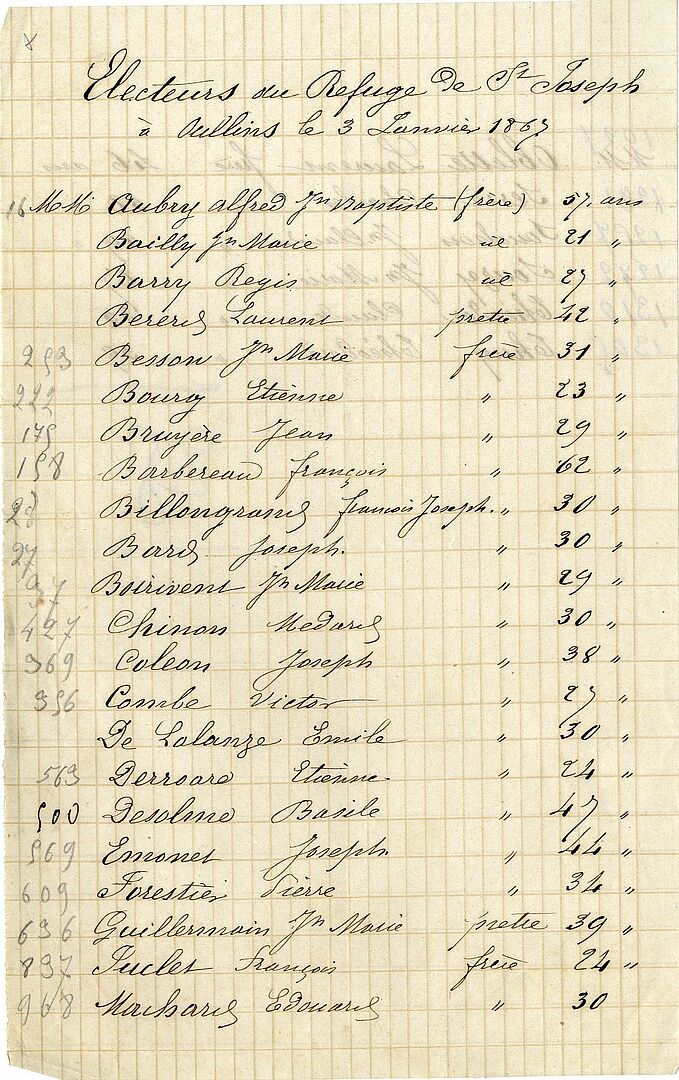 Electeurs du Refuge de St Joseph
à Oullins le 3 Janvier 1867
16 MM Aubry alfred Jn Baptiste (frère) 57 ans
Bailly Jn Marie id 21 "
Barry Regis id 27 "
Bererd Laurent pretre 42 "
253 Besson Jn Marie frère 31 "
222 Bourg Etienne " 23 "
175 Bruyère Jean " 29 "
158 Barbereau françois " 62 "
28 Billongrand françois Joseph. " 30 "
27 Bard Joseph. " 30 "
37 Boirivent Jn Marie " 29 "
427 Chinon Medard " 30 "
369 Coleon Joseph " 38 "
356 Combe Victor " 27 "
De Lalanze Emile " 30 "
563 Derroare Etienne " 24 "
500 Desolme Basile " 47 "
569 Emonet Joseph " 44 "
609 Forestier Pierre " 34 "
636 Guillermain Jn Marie pretre 39 "
837 Juclet François frère 24 "
968 Machard Edouard " 30